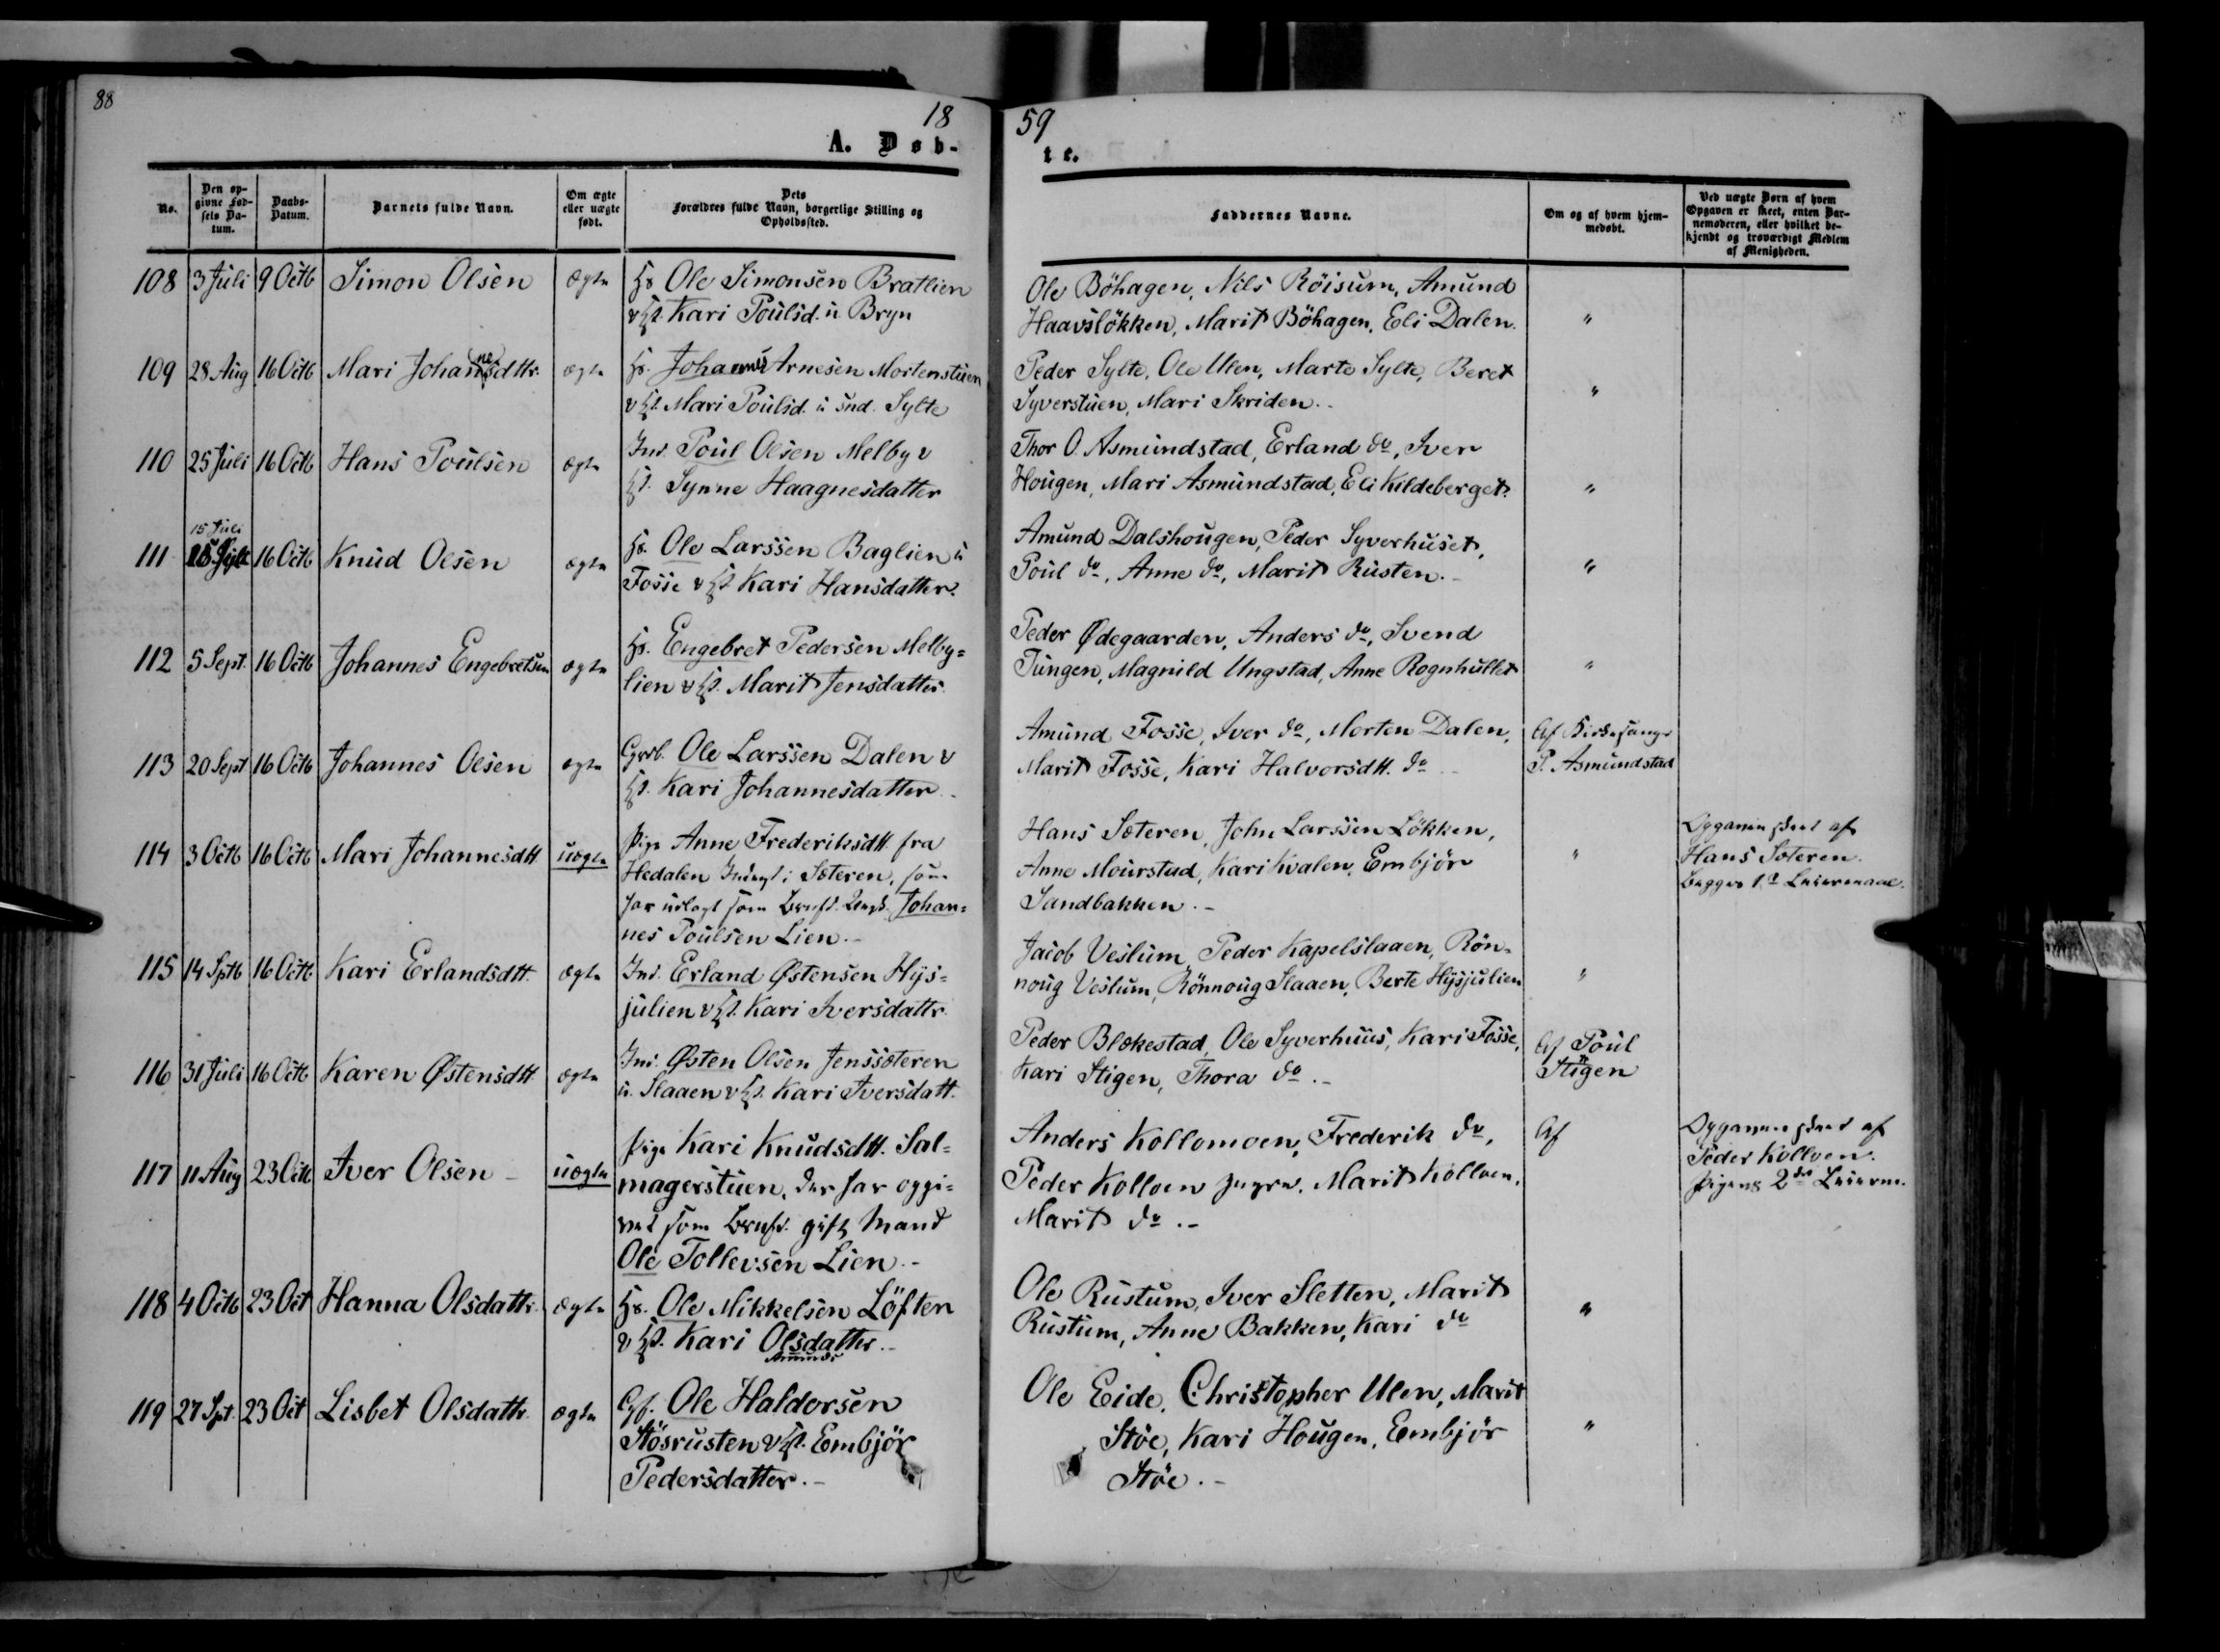 88
18
59
A. Døb-
te.
No.
Den op-
givne Fød-
sels Da-
tum.
Daabs-
Datum.
Barnets fulde Navn.
Om ægte
eller uægte
født.
Dets
Forældres fulde Navn, borgerlige Stilling og
Opholdssted.
Faddernes Navne.
Om og af hvem hjem-
medøbt.
Ved uægte Børn af hvem
Opgaven er skeet, enten Bar-
nemoderen, eller hvilket be-
kjendt og troværdigt Medlem
af Menigheden.
108 3 Juli 9 Octb Simon Olsen ægte
Hs Ole Simonsen Bratlien
v Hst. Kari Poulsd. u Bryn
Ole Böhagen, Nils Röisum, Amund
Haavslökken, Marit Böhagen, Eli Dalen.
"
109 28 Aug 16 Octb Mari Johannesdttr. ægte
Hs. Johannes Arnesen Mortenstuen
v Hst. Mari Poulsd. u snd. Sylte
Peder Sylte, Ole Ulen, Marte Sylte, Beret
Syverstuen, Mari Skriden.-
"
110 25 Juli 16 Octb Hans Poulsen ægte
Ind. Poul Olsen Melby v
Hst. Synne Haagnesdatter
Thor O. Asmundstad, Erland do, Iver
Hougen, Mari Asmundstad, Eli Kildeberget.
"
15 Juli
111 16 Octb Knud Olsen ægte
Hs. Ole Larssen Baglien u
Fosse v Hst Kari Hansdatter.
Amund Dalshougen, Peder Syverhuset,
Poul do, Anne do, Marit Rusten.-
"
112 5 Sept. 16 Octb Johannes Engebretsen ægte
Hs. Engebret Pedersen Melby=
lien v Hst. Marit Jensdatter.
Peder Ødegaarden, Anders do, Svend
Tungen, Magnild Ungstad, Anne Rognhullet
"
113 20 Sept 16 Octb Johannes Olsen ægte
Grb. Ole Larssen Dalen v
Hst. Kari Johannesdatter.-
Amund Fosse, Iver do, Morten Dalen,
Marit Fosse, Kari Halvorsdtt. do
Af Kirkesanger
P. Asmundstad
114 3 Octb 16 Octb Mari Johannesdtt. uægte
Pige Anne Frederiksdtt. fra
Hedalen Inderst i Sæteren, som
har udlagt som Barnef. Ungk. Johan=
nes Poulsen Lien.-
Hans Sæteren, John Larssen Lökken,
Anne Mourstad, Kari Kvalen, Embjör
Sandbakken.-
"
Opgaven skeet af
Hans Sæteren.
Begges 1ste Leiermaal.
115 14 Sptb 16 Octb Kari Erlandsdtt. ægte
Ind. Erland Østensen Hysi=
julien v Hst. Kari Iversdattr.
Jacob Veslum, Peder Kapelslaaen, Rön-
noug Veslum, Rönnoug Slaaen, Berte Hysjulien
"
116 31 Juli 16 Octb Karen Østensdtt. ægte
Ind. Østen Olsen Jenssæteren
u. Slaaen v Hst. Kari Iversdatt.
Peder Blækestad, Ole Syverhuus, Kari Fosse,
Kari Stigen, Thora do.-
Af Poul
Stigen
117 11 Aug 23 Octb Iver Olsen - uægte
Pige Kari Knudsdtt. Sal=
magerstuen, der har opgi=
vet som Barnef. gift Mand
Ole Tollevsen Lien.-
Anders Kollomoen, Frederik do,
Peder Kolloen yngre, Marit Kolloen,
Marit do.-
Af
Opgaven skeet af
Peder Kolloen.
Pigens 2det Leierm.
118 4 Octb 23 Oct Hanna Olsdattr. ægte
Hs. Ole Mikkelsen Löften
v Hst. Kari Olsdatter.-
Amunds
Ole Rustum, Iver Sletten, Marit
Rustum, Anne Bakken, Kari do
"
119 27 Spt. 23 Oct Lisbet Olsdattr. ægte
Gf. Ole Haldorsen
Stösrusten v Hst. Embjör
Pedersdatter.-
Ole Eide, Christopher Ulen, Marit
Stöe, Kari Hougen, Embjör
Stöe.-
"